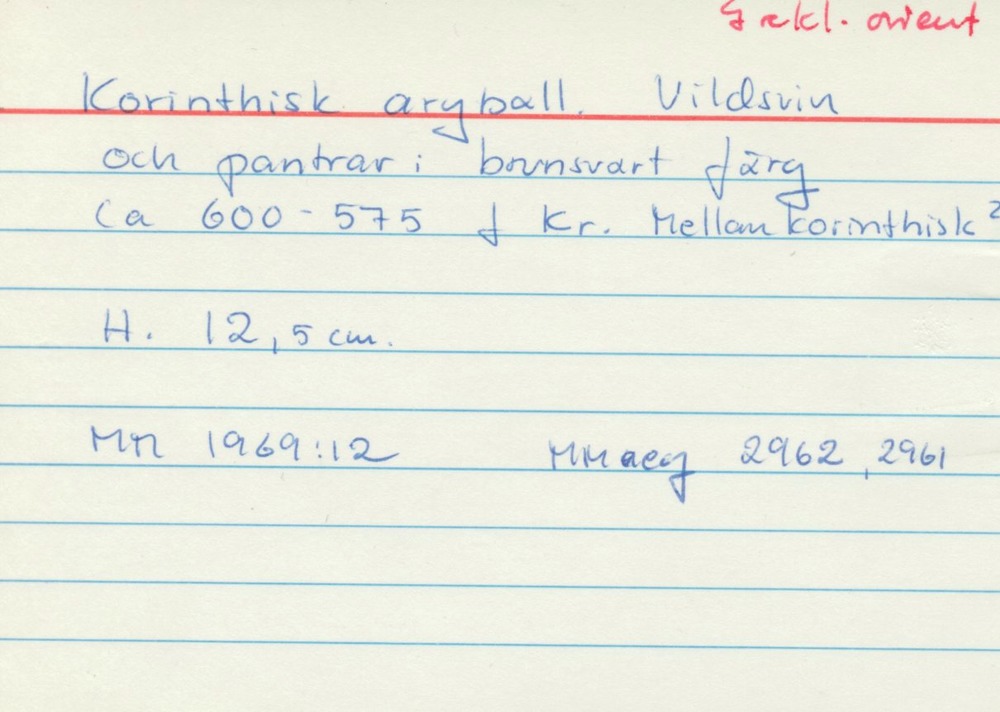 Grekl. orient
Korinthisk aryball. Vildsvin
och pantrar i brunsvart färg
Ca 600-575 f Kr. Mellankorinthisk?
H. 12,5 cm.
MM 1969:12 MM aeg 2962, 2961